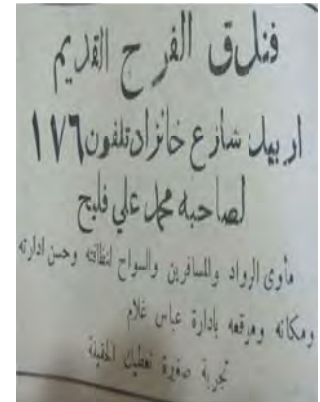 فندق الفرح القديم
اربيل شارع خانزاد تلفون ١٧٦
لصاحبه محمد علي فليح
مأوى الرواد والمسافرين والسواح لنظافته وحسن ادارته
ومكانه وموقعه بادارة عباس غلام
تجربة صغيرة تعطيك الحقيقة